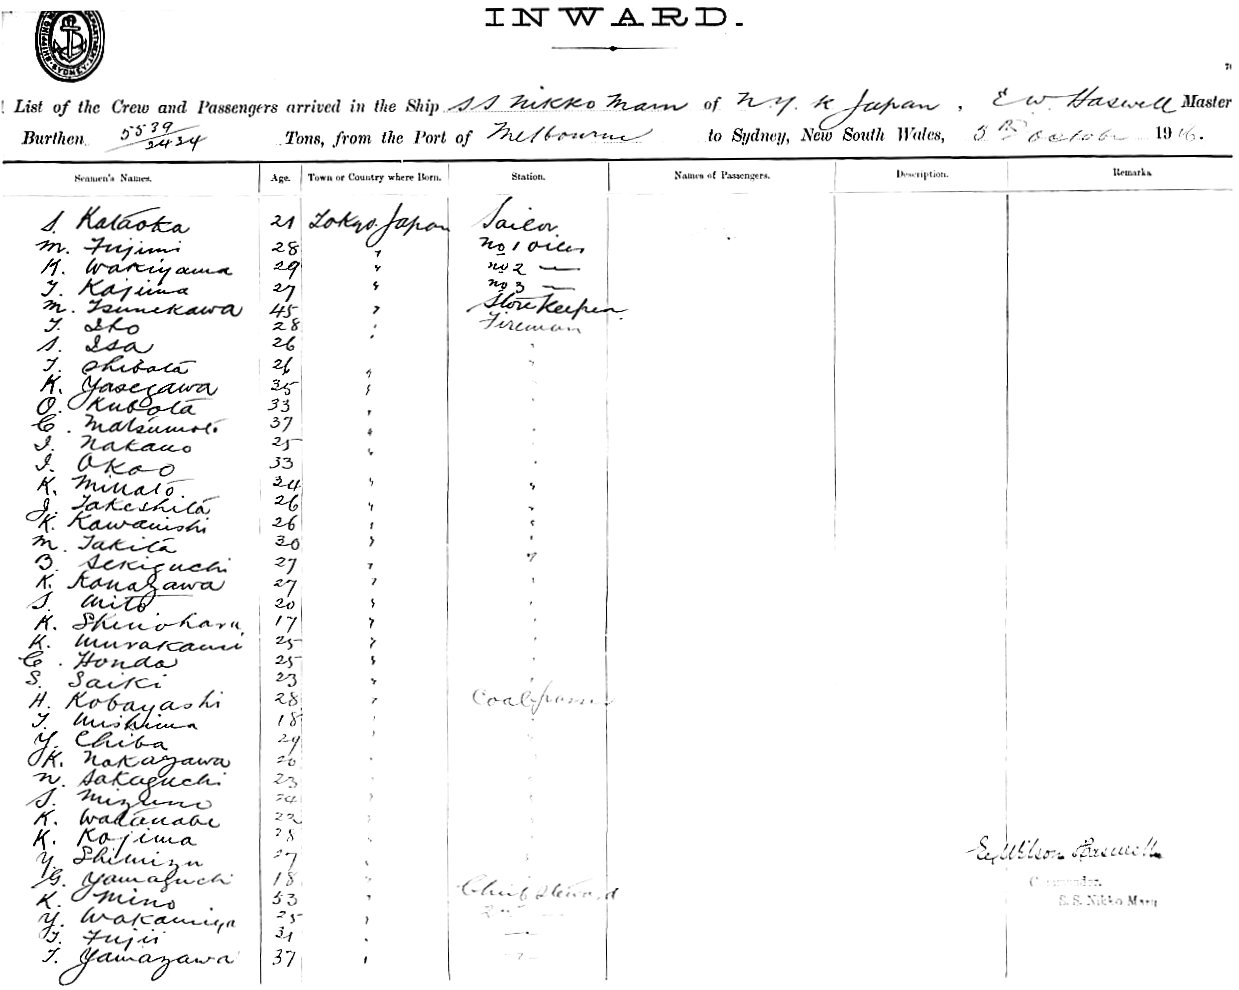 INWARD.
SHIPPING DEPARTMENT SYDNEY
List of the Crew and Passengers arrived in the Ship S S Nikko Maru of N Y K Japan, E W. Haswell Master
Burthen 5539/3434 Tons, from the Port of Melbourne to Sydney, New South Wales, 3rd October 1916.
Seamen's Names. Age. Town or Country where Born. Station. Names of Passengers. Description. Remarks
S. Kataoka 21 Tokyo Japan Sailor
M. Fujimi 28 " No 1 Oiler
K. Wakiyama 29 " No 2 —
T. Kajima 27 " No 3 —
M. Tsunekawa 45 " Store Keeper
T. Ito 28 " Fireman
S. Isa 26 " "
T. Shibata 26 " "
K. Yasegawa 35 " "
O. Kubota 33 " "
C. Matsumoto 37 " "
I. Nakano 25 " "
I. Okao 33 "
K. Minato 34 " "
J. Takeshita 26 " "
K. Kawanishi 26 " "
M. Takita 30 " "
B. Sekiguchi 27 " "
K. Kanazawa 27 " "
S. Mito 20 " "
K. Shinohara 17 " "
K. Murakami 25 " "
C. Honda 25 " "
S. Saiki 23 " "
H. Kobayashi 28 " Coal passer
T. Mishima 18 " "
Y. Chiba 29 " "
K. Nakazawa 26 " "
N. Sakaguchi 23 " "
S. Mizuno 24 " "
K. Watanabe 22 " "
K. Kojima 28 " "
Y. Shimizu 27 " "
G. Yamaguchi 18 "
K. Mino 53 " Chief Steward
Y. Wakamiya 25 " 2nd —
T. Fujii 31 " —
T. Yamazawa 37 " "
E. Wilson Haswell
Commander.
S. S. Nikko Maru